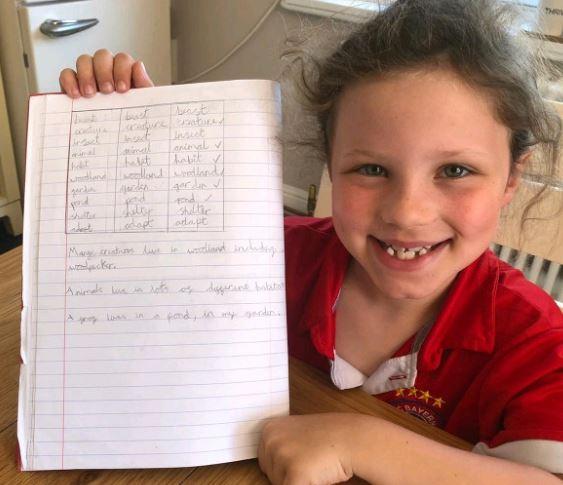 beast beast beast
creature creature creature ✓
insect insect insect
animal animal animal ✓
habit habit habit ✓
woodland woodland woodland ✓
garden garden garden ✓
pond pond pond ✓
shelter shelter
adapt adapt adapt
Many creatures live in woodland including
woodpecker.
Animals live in lots of different habitat
A frog lives in a pond, in my garden.
BAYERN
THRIV